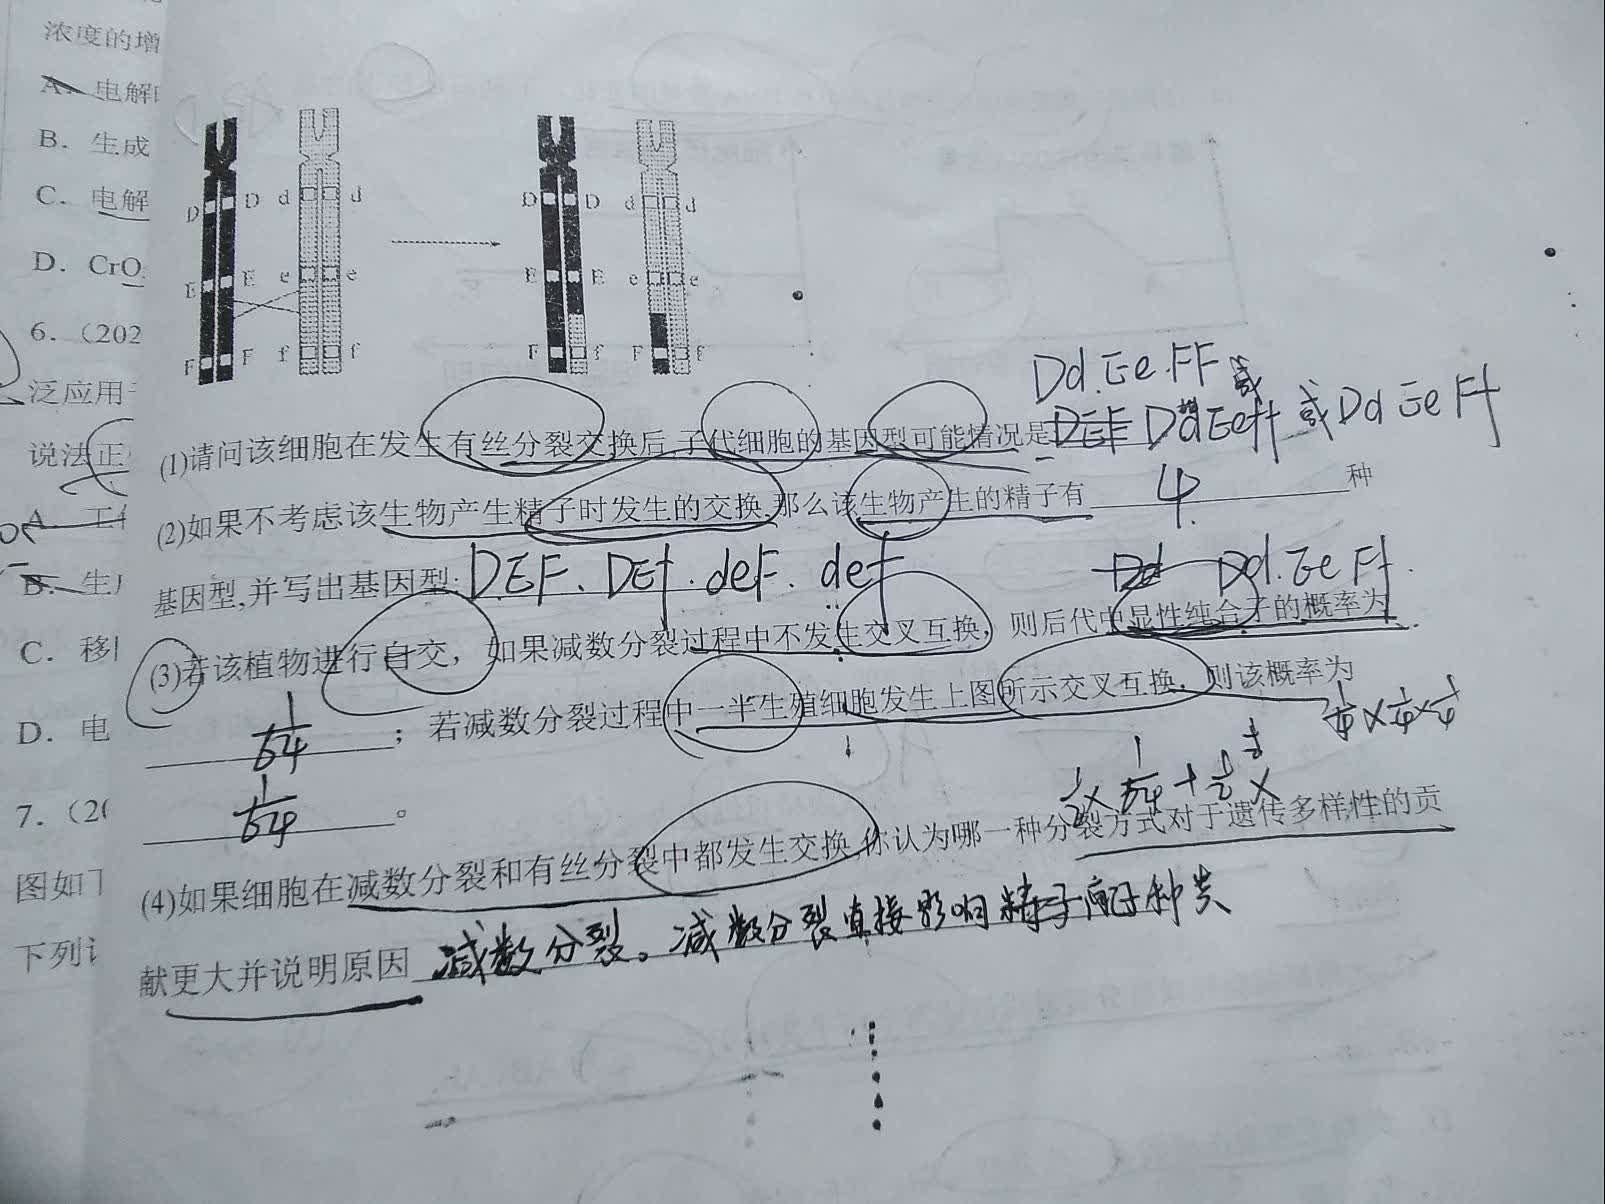 浓度的增
A. 电解
B. 生成
C. 电解
D. CrO
6.（202
泛应用
说法正
C. 移
D. 电
7.（20
图如下
下列
D D d d
E E e e
F F f f
D D d d
E E e e
F f F f
Dd.Ee.FF 或
(1)请问该细胞在发生有丝分裂交换后,子代细胞的基因型可能情况是 DdEeff 或DdEeFf
(2)如果不考虑该生物产生精子时发生的交换,那么该生物产生的精子有 4 种
基因型,并写出基因型: DEF. DEf. deF. def
Dd Dd.EeFf.
(3)若该植物进行自交，如果减数分裂过程中不发生交叉互换，则后代中显性纯合子的概率为
1/64 ；若减数分裂过程中一半生殖细胞发生上图所示交叉互换，则该概率为
1/4×1/4×1/4
1/64 。
1/2×1/64+1/2×
(4)如果细胞在减数分裂和有丝分裂中都发生交换,你认为哪一种分裂方式对于遗传多样性的贡
献更大并说明原因 减数分裂。减数分裂直接影响精子种类